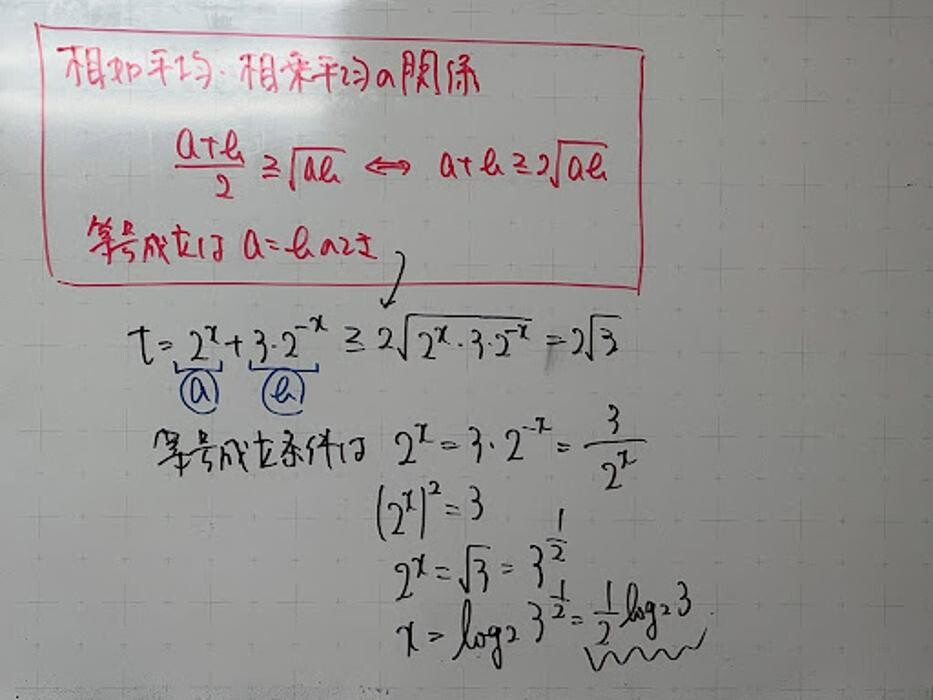 相加平均・相乗平均の関係
(a+b)/2 ≧ √(ab) ⇔ a+b ≧ 2√(ab)
等号成立は a=b のとき
t = 2^x + 3・2^(-x) ≧ 2√(2^x・3・2^(-x)) = 2√3
a b
等号成立条件は 2^x = 3・2^(-x) = 3/2^x
(2^x)^2 = 3
2^x = √3 = 3^(1/2)
x = log₂ 3^(1/2) = 1/2 log₂ 3